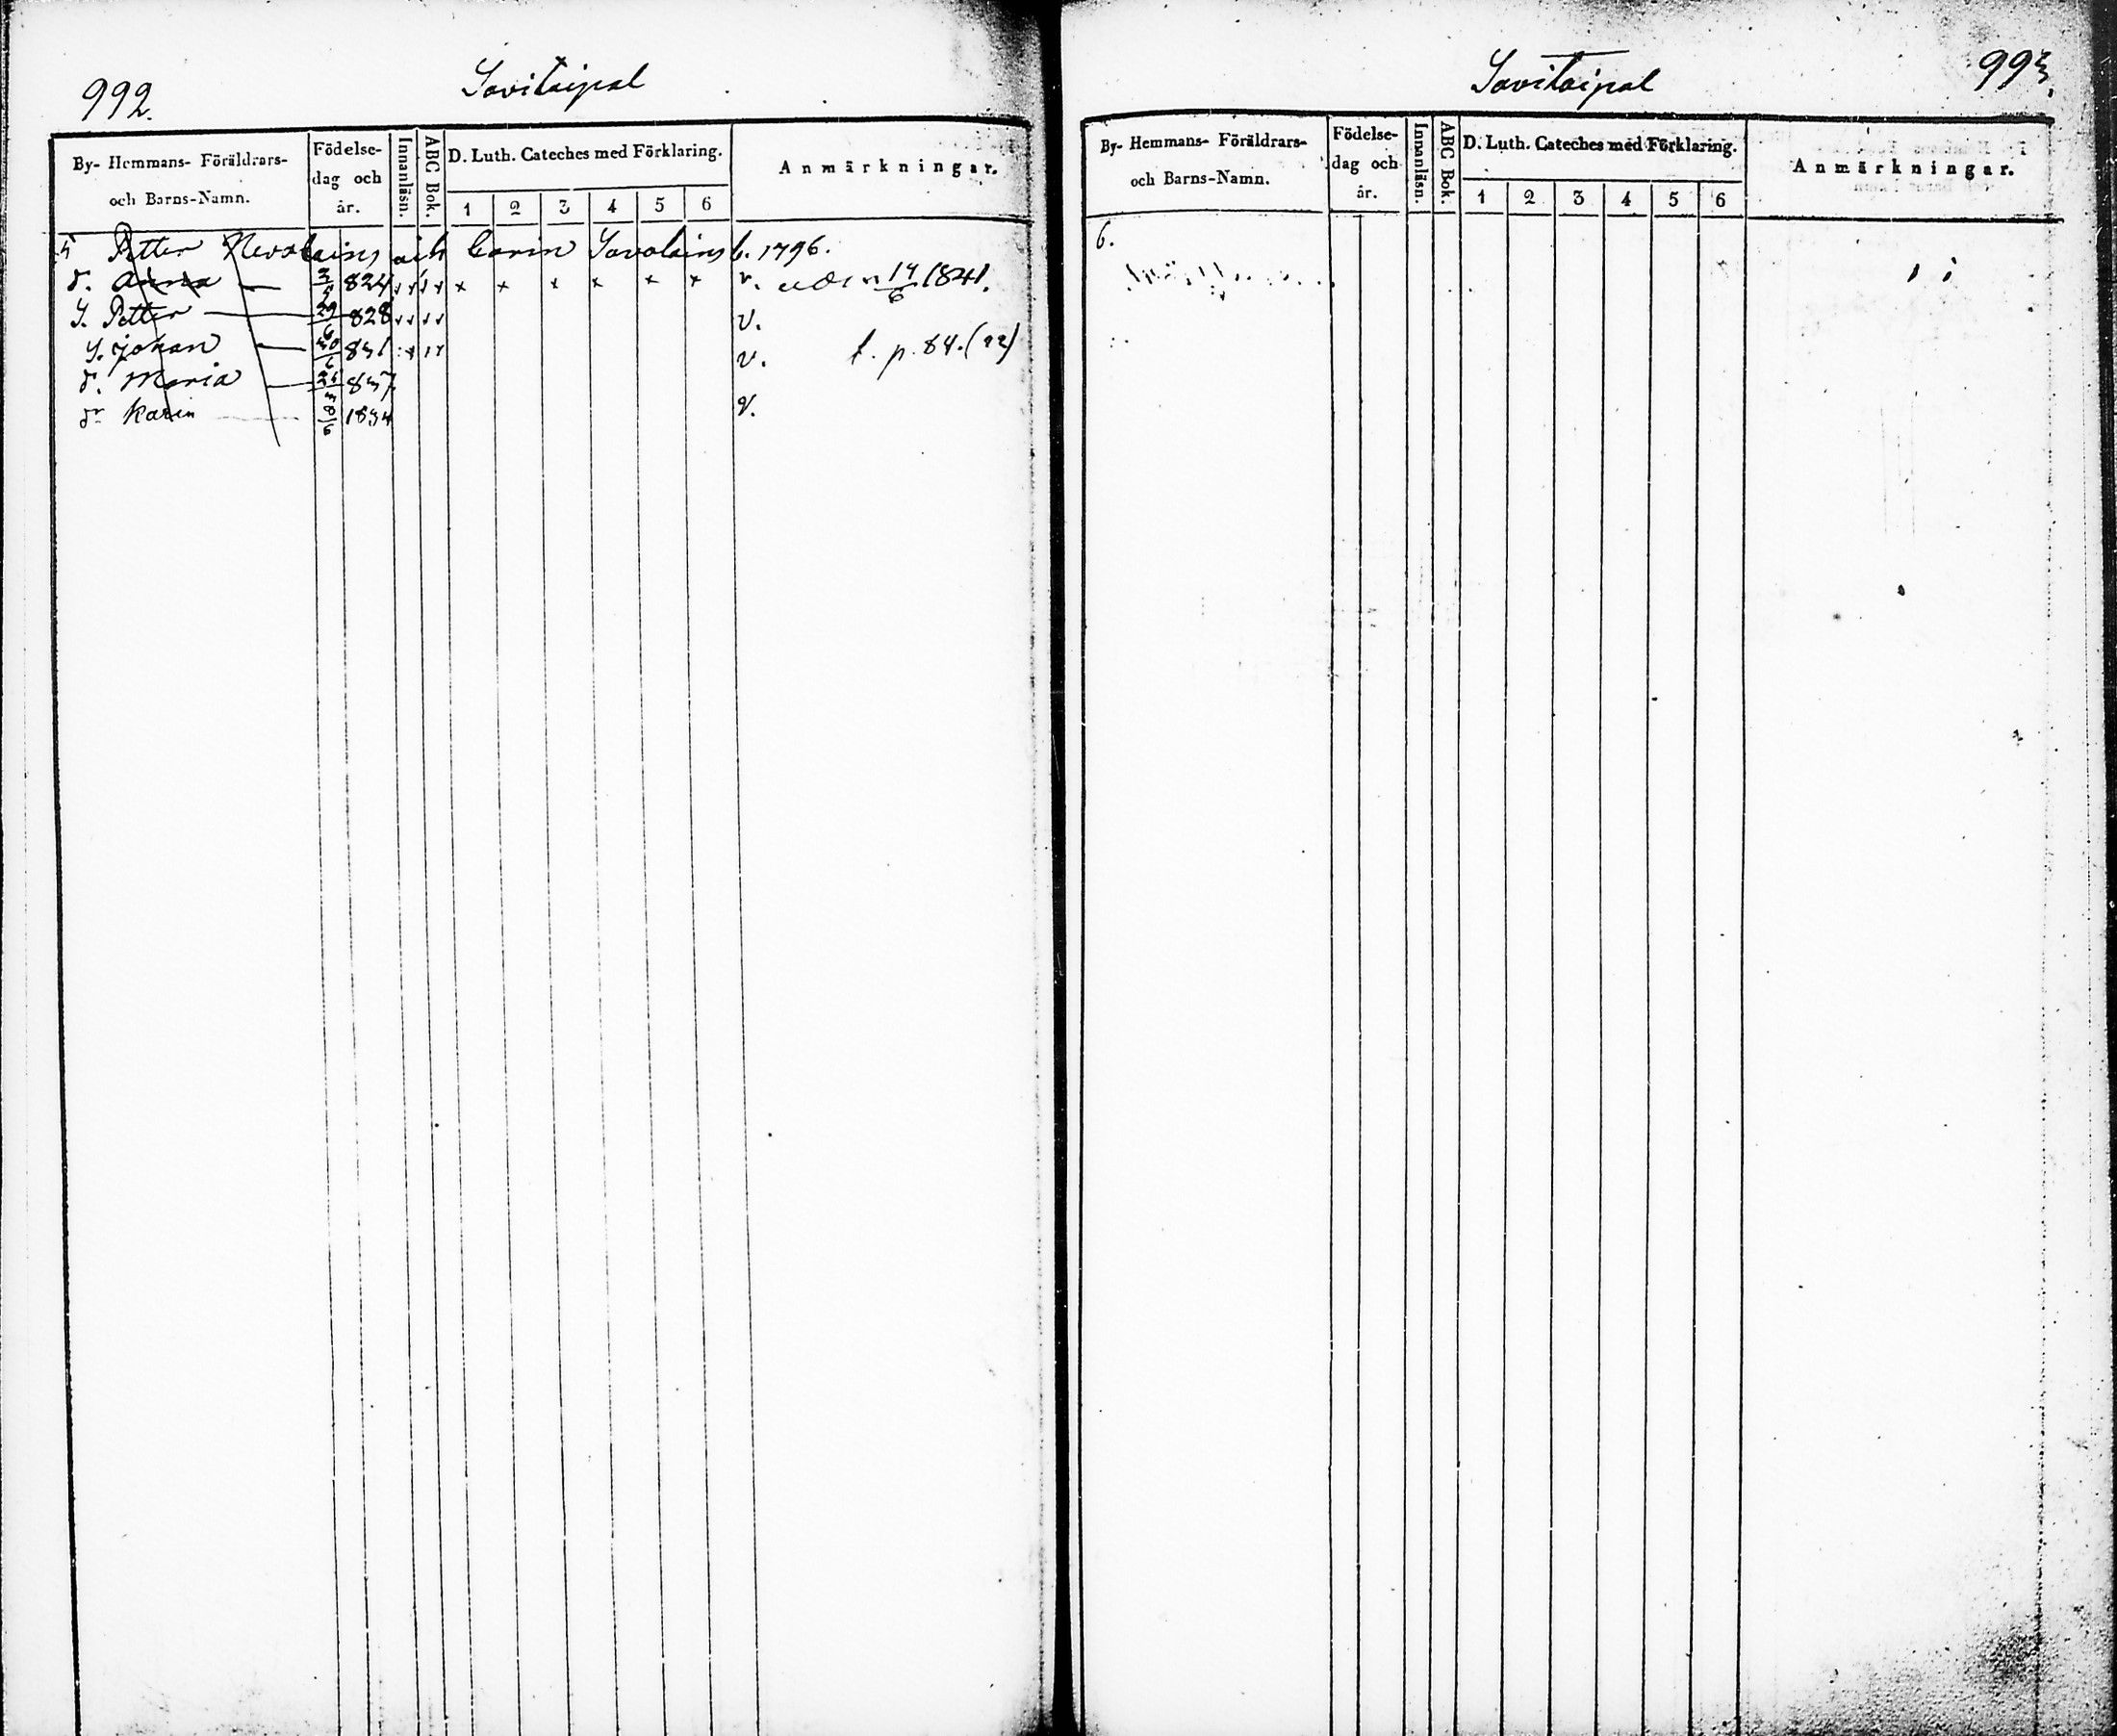 992.
Savitaipal
By- Hemmans- Föräldrars-
och Barns-Namn.
Födelse-
dag och
år.
Innanläsn.
ABC Bok.
D. Luth. Cateches med Förklaring.
1 2 3 4 5 6
Anmärkningar.
5 Petter Nevalains och Carin Savolains b. 1796.
d. Anna 824 x x x x x x v. 14/6 1841.
S. Petter 29/6 828 v.
S. Johan 30/6 831 v. f. p. 84. (22)
d. Maria 837
dr Karin 1834 v.
Savitaipal
993.
By- Hemmans- Föräldrars-
och Barns-Namn.
Födelse-
dag och
år.
Innanläsn.
ABC Bok.
D. Luth. Cateches med Förklaring.
1 2 3 4 5 6
Anmärkningar.
6.